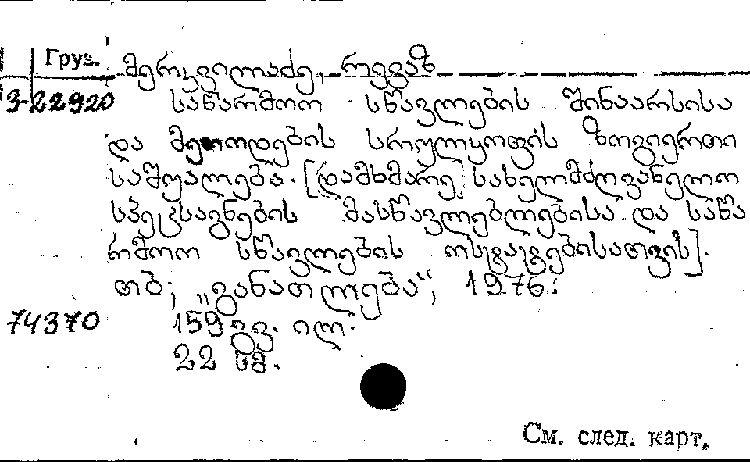 Груз. მერკვილაძე, რევაზ
3-22920 საწარმოო სწავლების შინაარსისა
და მეთოდების სრულყოფის ზოგიერთი
საშუალება. [დამხმარე სახელმძღვანელო
სპეცსაგნების მასწავლებლებისა და საწა
რმოო სწავლების ოსტატებისათვის].
თბ; „განათლება“, 1976.
74370 159 გვ. ილ.
22 სმ.
См. след. карт.